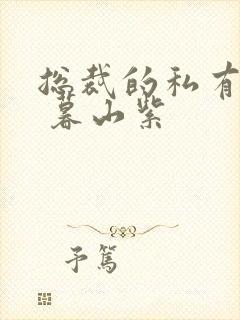 總裁的私有
暮山紫
予篤